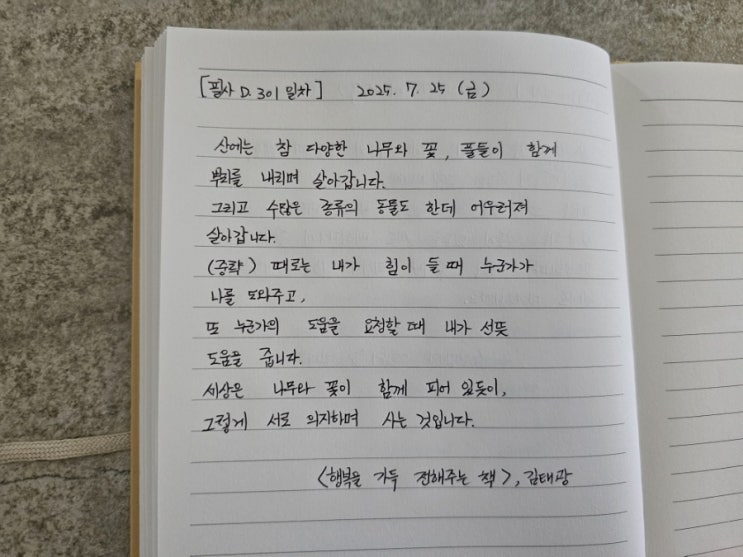 [필사 D. 301 일차] 2025. 7. 25 (금)
산에는 참 다양한 나무와 꽃, 풀들이 함께
뿌리를 내리며 살아갑니다.
그리고 수많은 종류의 동물도 한데 어우러져
살아갑니다.
(중략) 때로는 내가 힘이 들 때 누군가가
나를 도와주고,
또 누군가의 도움을 요청할 때 내가 선뜻
도움을 줍니다.
세상은 나무와 꽃이 함께 피어 있듯이,
그렇게 서로 의지하며 사는 것입니다.
<행복을 가득 전해주는 책>, 김태광